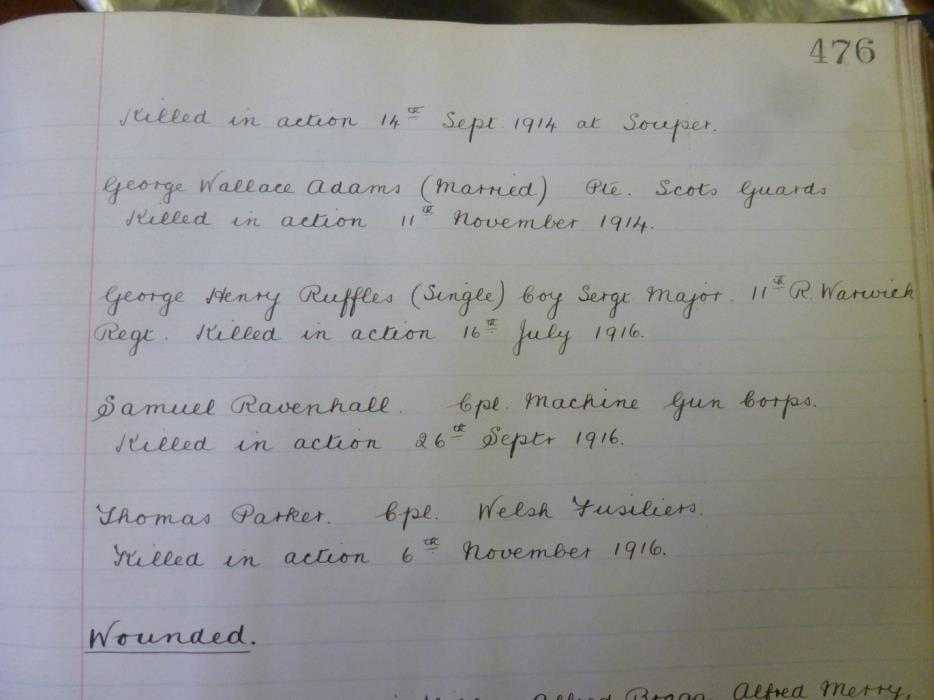 476
Killed in action 14th Sept 1914 at Souper.
George Wallace Adams (Married) Pte. Scots Guards
Killed in action 11th November 1914.
George Henry Ruffles (Single) Coy Sergt Major. 11th R. Warwick
Regt. Killed in action 16th July 1916.
Samuel Ravenhall. Cpl. Machine Gun Corps.
Killed in action 26th Septr 1916.
Thomas Parker. Cpl. Welsh Fusiliers.
Killed in action 6th November 1916.
Wounded.
Alfred Bragg, Alfred Merry,